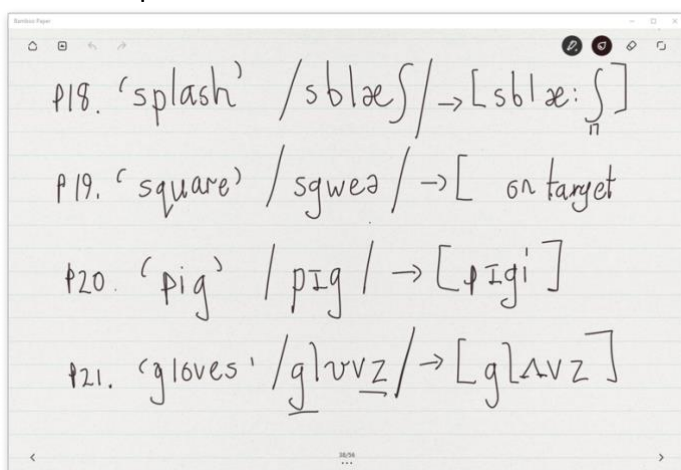 Bamboo Paper
P18. 'splash' /sblæʃ/ → [sblæ:ʃ̪]
P19. 'square' /sgweə/ → [ on target
P20. 'pig' /pɪg/ → [pɪgi]
P21. 'gloves' /glʊvz/ → [glʌvz]
38/56